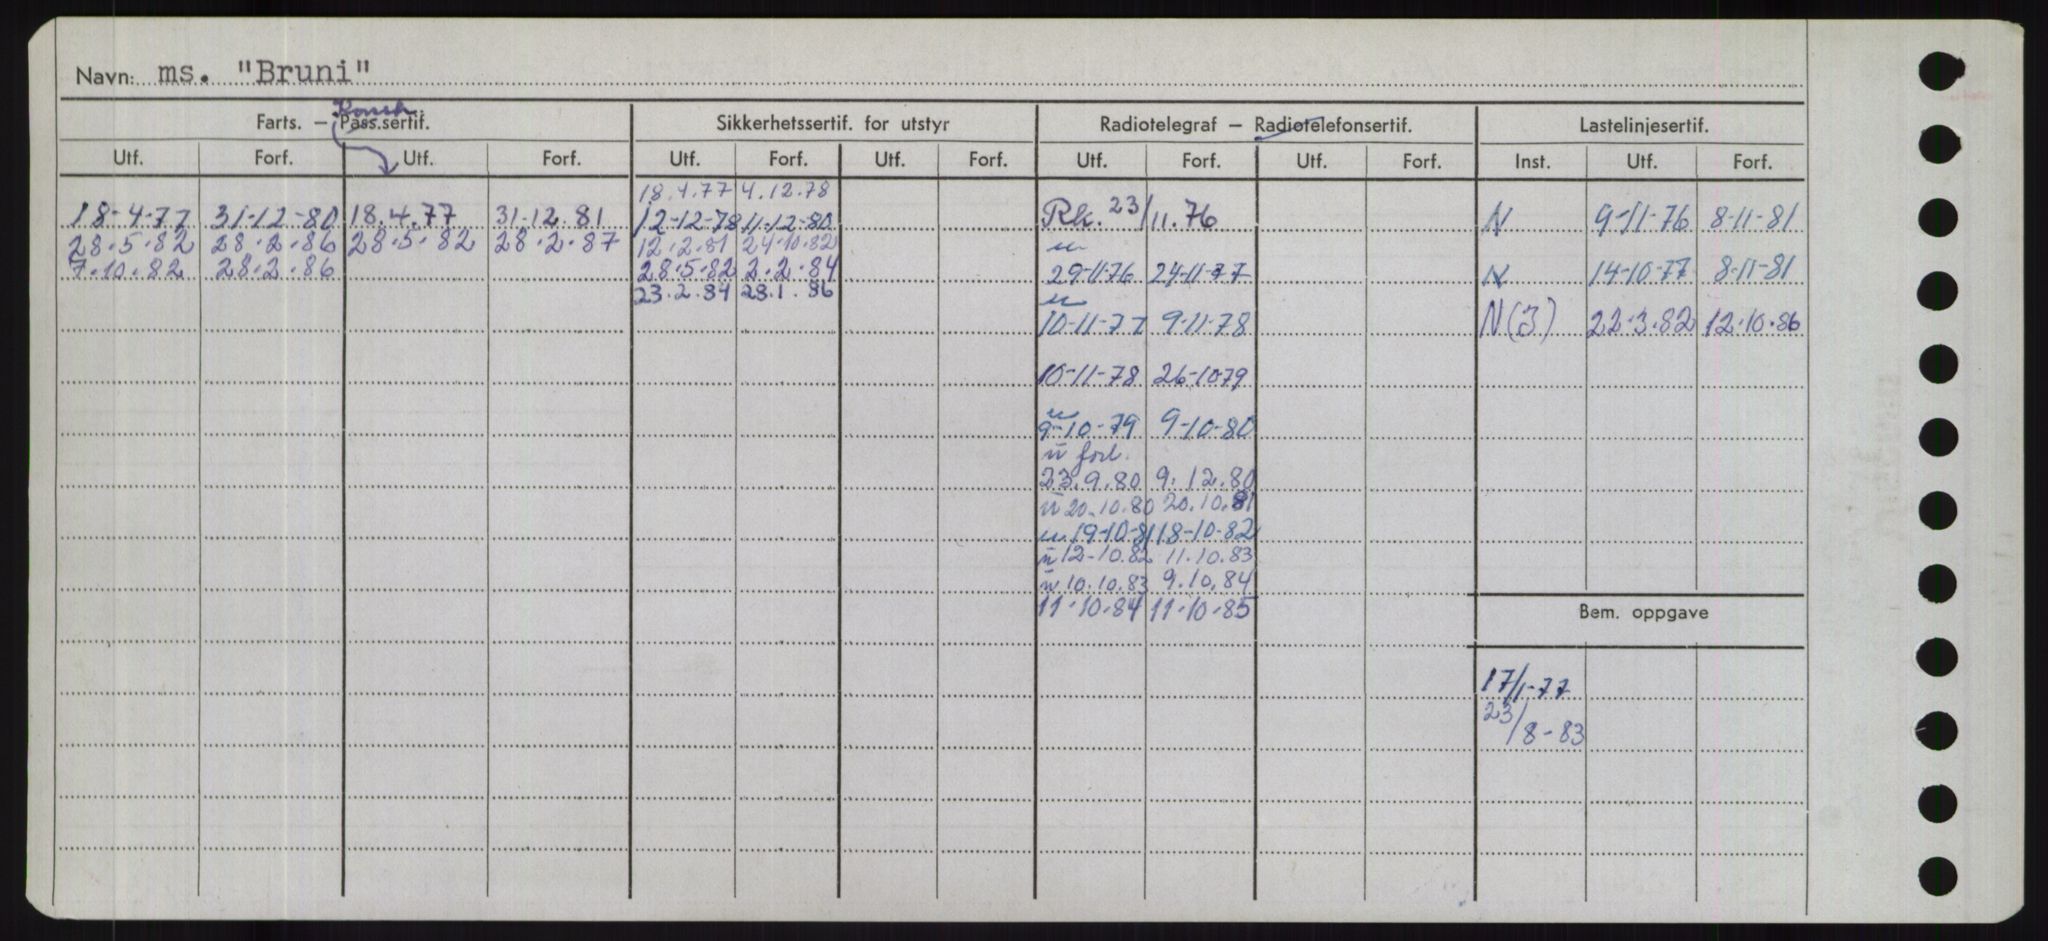 Navn: ms. "Bruni"
Konstr.
Farts. — Pass.sertif. Sikkerhetssertif. for utstyr Radiotelegraf — Radiotelefonsertif. Lastelinjesertif.
Utf. Forf. Utf. Forf. Utf. Forf. Utf. Forf. Utf. Forf. Utf. Forf. Inst. Utf. Forf.
18.4.77 4.12.78
18-4-77 31-12-80 18.4.77 31.12.81 12-12-78 11-12-80 Rk. 23/11.76 N 9-11-76 8-11-81
28.5.82 28.2.86 28.5.82 28.2.87 12.2.81 24.10.82 u
7.10.82 28.2.86 28.5.82 2.2.84 29-11-76 24-11-77 N 14-10-77 8-11-81
23.2.84 23.1.86 u
10-11-77 9-11-78 N(3) 22.3.82 12.10.86
10-11-78 26-10-79
u
9-10-79 9-10-80
u forl.
23.9.80 9.12.80
u 20.10.80 20.10.81
u 19-10-81 18-10-82
u 12-10.82 11.10.83
u 10.10.83 9.10.84
11.10.84 11.10.85
Bem. oppgave
17/1-77
23/8-83